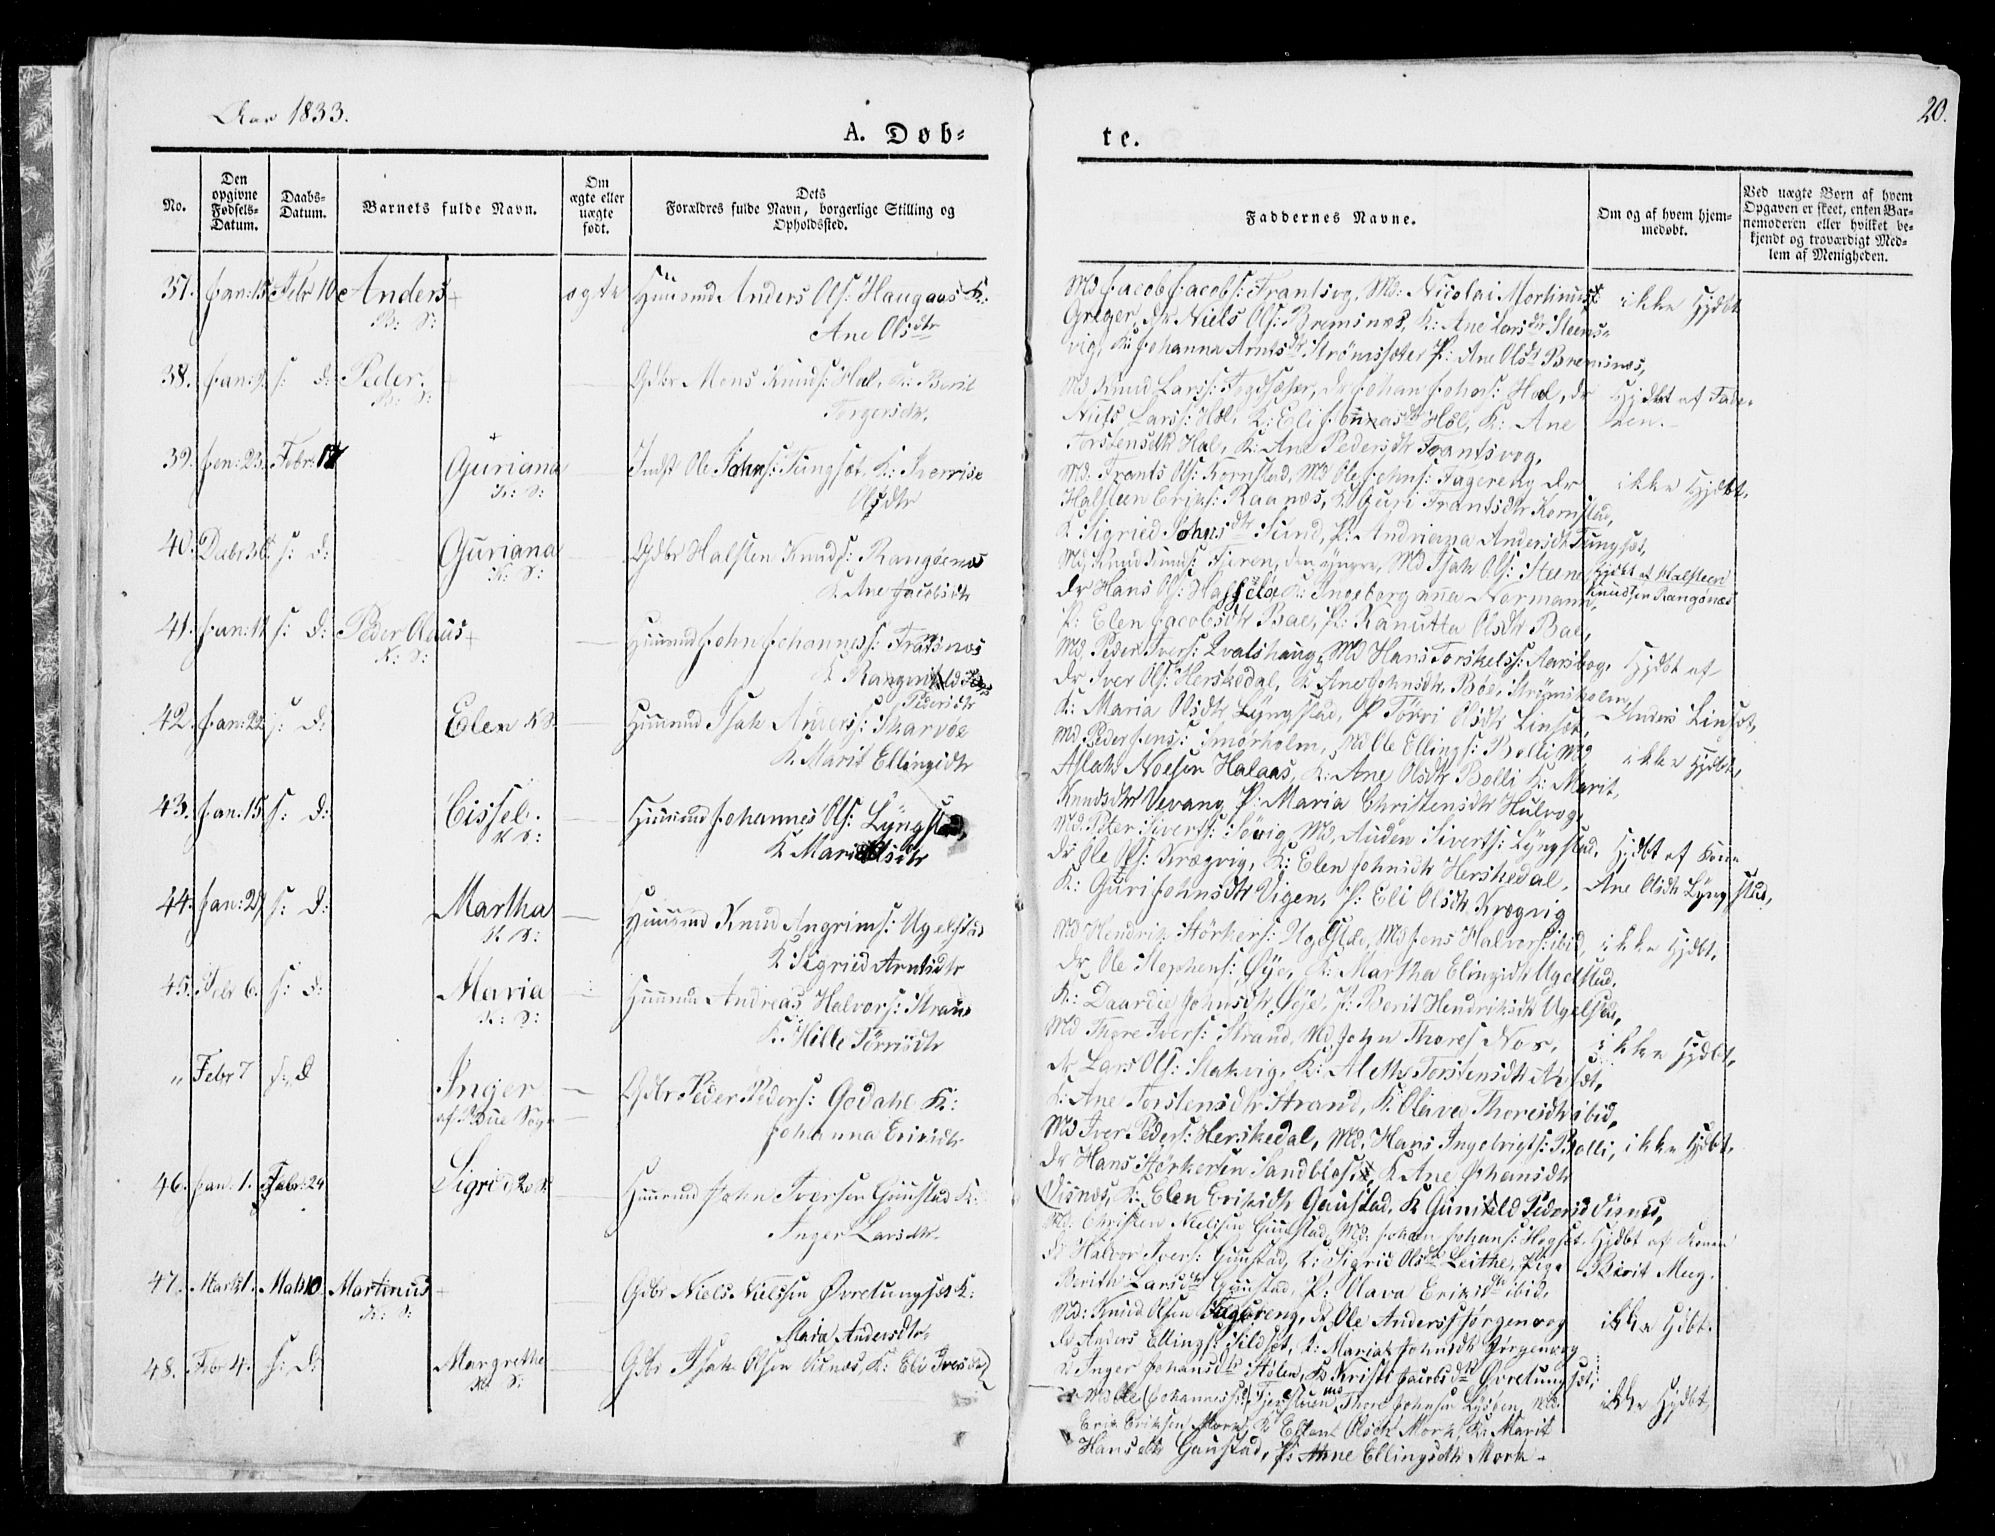 Aar 1833.
20.
A. Døb=
te.
No.
Den opgivne Fødsels-Datum.
Daabs-Datum.
Barnets fulde Navn.
Om ægte eller uægte født.
Dets Forældres fulde Navn, borgerlige Stilling og Opholdssted.
Faddernes Navne.
Om og af hvem hjemmedøbt.
Ved uægte Børn af hvem Opgaven er skeet, enten Barnemoderen eller hvilket bekjendt og troværdigt Medlem af Menigheden.
37. Jan: 15 Febr 10 Anders ægte Huusmd Anders Ols: Haugaas K:
Ane Olsdtr
Md Jacob Jacobs: Frantsvg, Md: Nicolai Mortinus
Greger, Dr Niels Ols: Bremsnæs, K: Ane Larsdtr Steens=
vig, K: Johanna Arntsdr Strømsæter P: Ane Olsdr Bremsnæs,
ikke Hjdbt
38. Jan: s: d: Peder. Gdbr Mons Knuds: Hol, K: Berit
Torgersdtr.
Md Knud Lars: Dr Johan Johns: Hol, Dr
Niels Lars: Hol, K: Eli Hol, K: Ane
Torstensdtr Hol, K: Ane Pedersdtr Frantsvog,
Hjdbt af Fade-
ren.
39. Jen: 23. Febr: 17 Guriana Indst Ole Johns: Tungsæt, K:
Olsdtr
Md: Frants Ols: Kornstad, Md Ole Johns: Fagereng Dr
Halsteen Eriks: Raanæs, K: Guri Frantsdtr Kornstad,
K: Sigried Johnsdtr Sund, P: Andrianna Andersdtr Tungsæt,
ikke Hjdbt,
40. Decbr 30. s: d: Guriana Gdbr Halsten Knuds: Rangøenæs
K: Ane Jacobsdtr
Md: Knud Knuds: den yngre, Md Isak Ols: Steene
Dr Hans Ols: K: Ingeborg anna Normann,
P: Elen Jacobsdtr Bae, P: Kanutta Olsdtr Bae,
Hjdbt af Halsteen
Knudsen Rangønæs
41. Jan: 11 s: d: Peder Olaus Huusmd John Johannes:
K: Pedersdtr
Md, Peder Ivers: Qvalshaug, Md Hans Torskels: Aarsbog,
Dr Iver Ols: Herskedal, K: Ane Johnsdtr Bøe, Strømsholm,
K: Maria Olsdtr Lyngstad, P: Tørri Olsdtr Linsæt,
Hjdbt af
Anders Linsæt,
42. Jan: 22 s: d: Elen Huusmd Isak Anders: Skarvøe
K: Marit Ellingsdtr
Md: Peder Jens: Smørholm, Md Ole Ellings: Bolli Md
Aslak Noesen Halaas, K: Ane Olsdtr Bolli K: Marit,
Knudsdtr Vevang, P: Maria Christensdtr Hulvog,
ikke Hjdbt,
43. Jan: 15. s: d: Cissel. Huusmd Johannes Ols: Lyngstad,
K: Mari Olsdtr
Md: Peter Siverts: Sørvig, Md, Auden Siverts: Lyngstad,
Dr Ole Ols: Krægvig, K: Elen Johnsdtr Herskedal,
K: Guri Johnsdtr Vigen, P: Eli Olsdtr Krægvig
Hjdbt af Konen
Ane Olsdtr Lyngstad,
44. Jan: 27 s: d: Martha Huusmd Knud Angrims: Ugelstad
K: Sigried Arntsdtr
Md Hendrik Størkers: Ugelstad, Md Jens Halvors: ibid,
Dr Ole Stephens: Øye, K: Martha Elingsdtr Ugelstad,
K: Daardie Johnsdtr Øye, P: Berit Hendriksdtr Ugelstad,
ikke Hjdbt,
45. Febr 6. s: d: Maria Huusmd Andreas Halvors: Strand
K: Hille Tørrisdtr
Md Thore Ivers: Strand, Md John Thores Nos,
Dr Lars Ols: Stakvig, K: Aleth Torstensdtr
K: Ane Torstensdtr Strand, K: Olava Thoresdtr ibid,
ikke Hjdbt,
" Febr 7 s: d Inger
af Boe Sogn
Gdbr Peder Peders: Godahl K:
Johanna Eriksdtr
Md Iver Peders: Herskedal, Md. Hans Ingebrigts: Bolli,
Dr Hans Størkersen Sandblost, K: Ane Johansdtr
Visnæs, K: Elen Eriksdtr Gaustad, K: Gunild Pedersd Visnes,
ikke Hjdbt,
46. Jan: 1. Febr: 24 Sigrid Huusmd John Iversen Gaustad K:
Inger Larsdtr.
Md: Christen Nielssen Gaustad, Md: Johan Johans: Høgset
Dr Halvor Ivers: Gaustad, K: Sigrid Olsdtr Leithe, Pige
Berith Larsdtr Gaustad, P: Olava Eriksdtr ibid.
Hjdbt af Konen
Birit Mug.
47. Marts 1. Mats 10. Martinus Gdbr Niels Nielssen Øvretungset K:
Maria Andersdtr.
Md: Knud Olsen Fagereng, Ole Anders: Jørgenvog
Dr Anders Ellings: Sildset, K: Maria Johnsdtr Jørgenvog
K: Inger Johansdtr Holen, K: Kristi Jacobsdtr Øvretungset,
ikke Hjbt.
48. Febr 4. s: d: Margrethe Gdbr Isak Olsen K: Eli Iversdtr
Md Ole Johannes: Md Thore Johnsen Lysøen, Md:
Erik Eriksen Mork, K: Ellen Olsdtr Mork, K: Marit
Hansdtr Gaustad, P: Anne Ellingsdtr Mork.
ikke Hjdbt